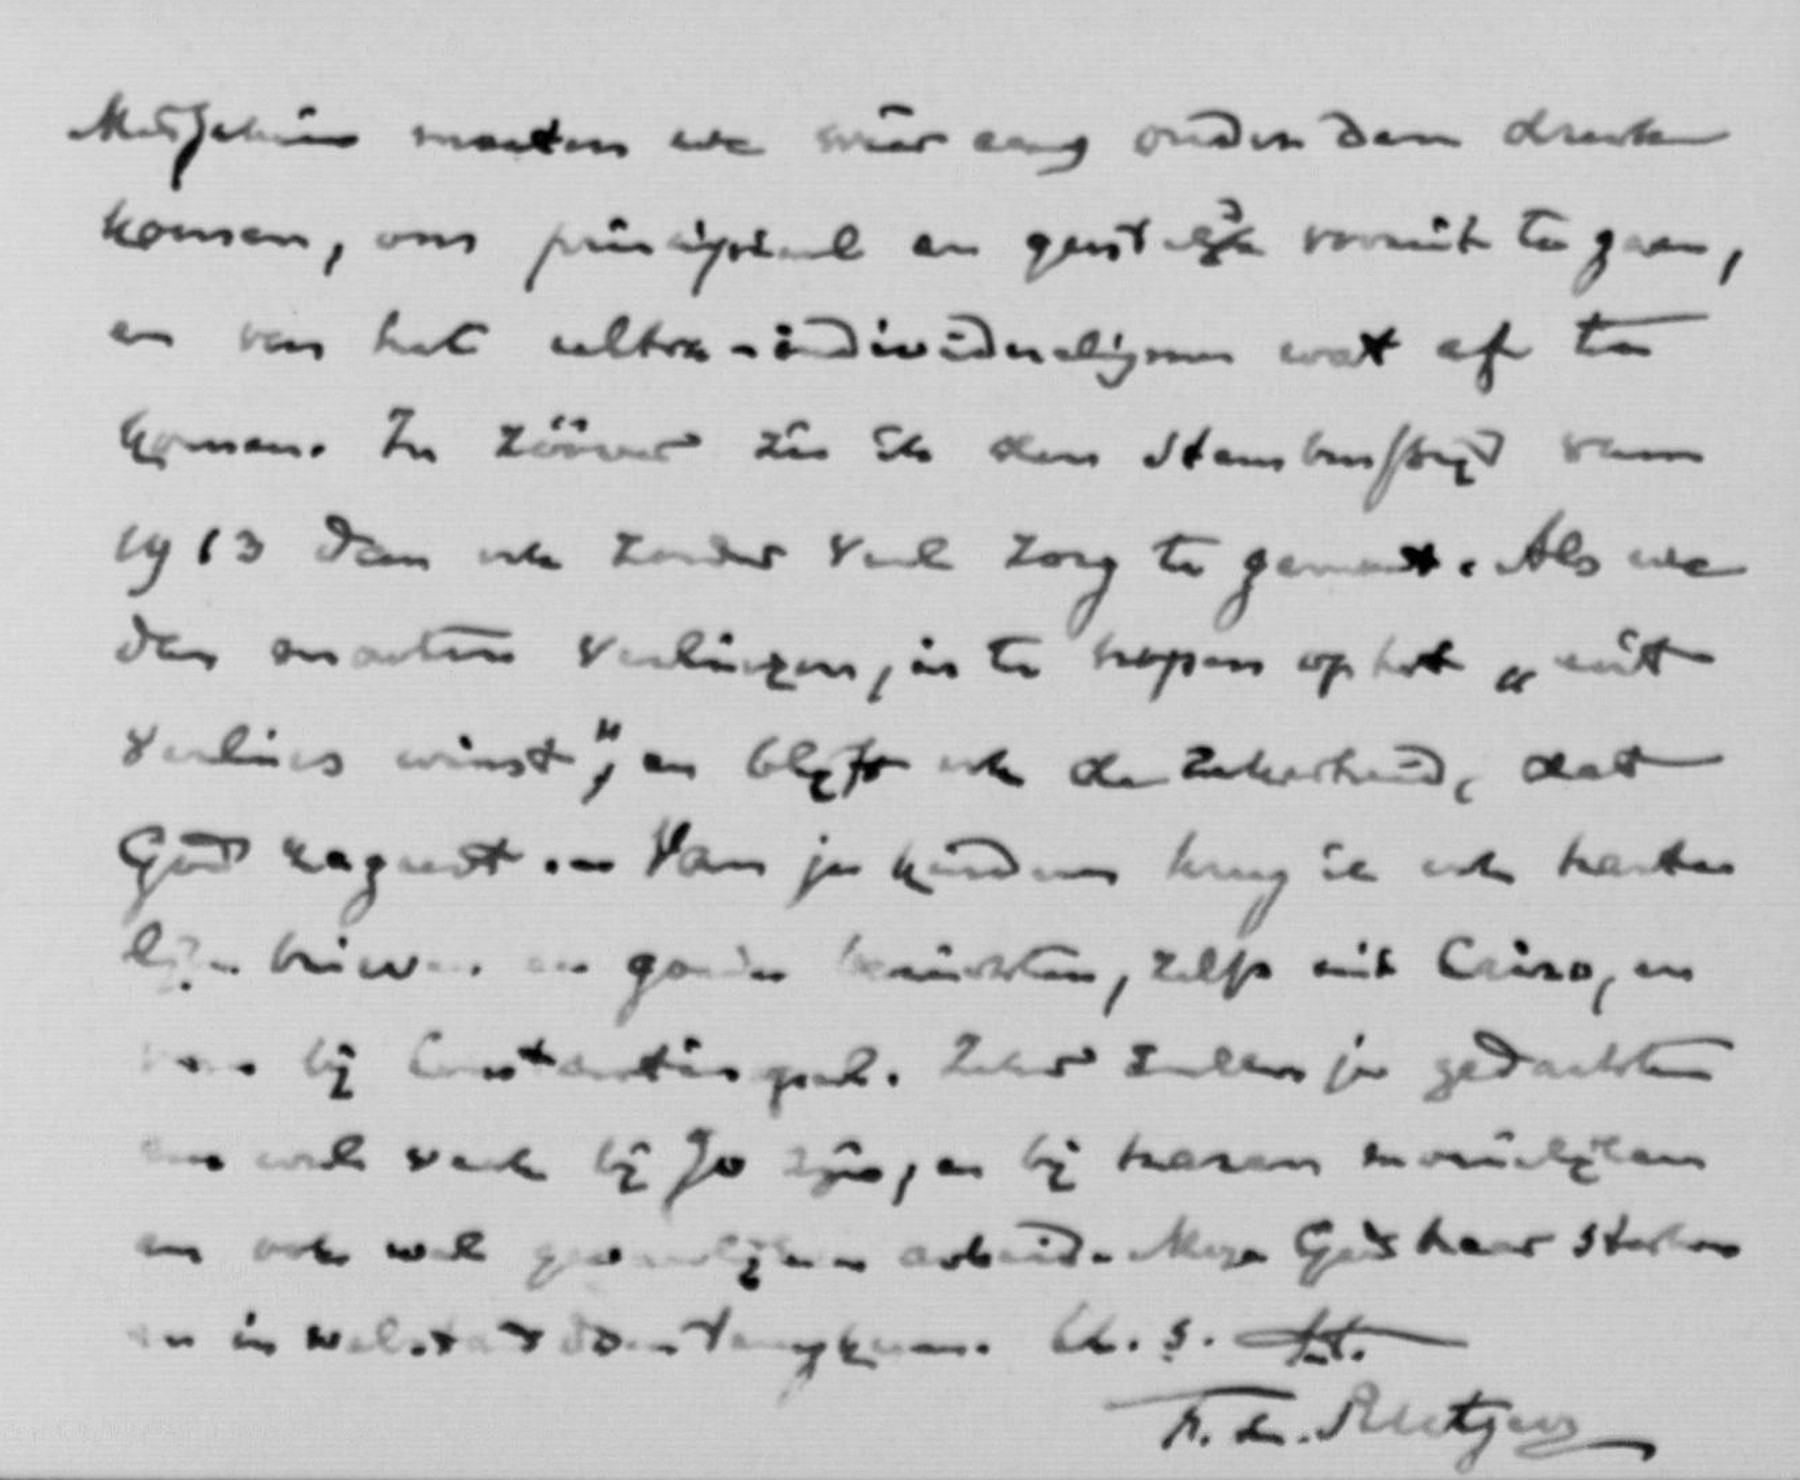 Misschien moeten we weer eens onder den druk
komen, om principieel en geestelijk vooruit te gaan,
en van het ultra-individualisme wat af te
komen. In zóóver zie ik den stembusstrijd van
1913 dan ook zonder veel zorg te gemoet. Als we
dan moeten verliezen, is te hopen op het „uit
verlies winst", en blijft ook de zekerheid, dat
God regeert. — Van je kinderen kreeg ik ook harte
lijke brieven en goede berichten, zelfs uit Cairo, en
van bij Constantinopel. Zeker zullen je gedachten
ook veel bij Jo zijn, en bij haren moeilijken
en ook wel gevaarlijken arbeid. Moge God haar sterken
en in welstand doen terugkeeren. t. t.
F. L. Rutgers